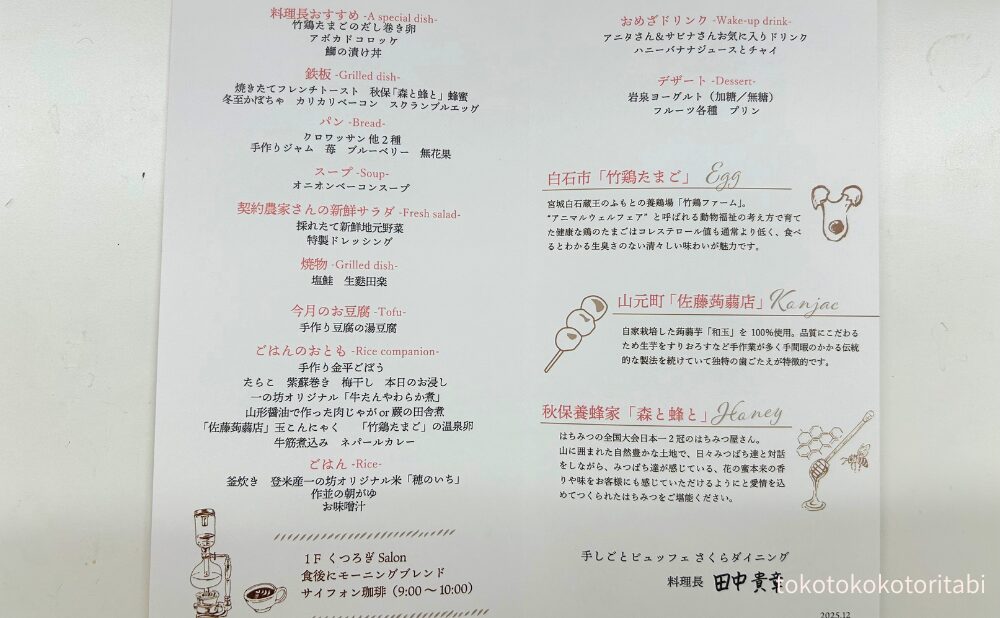 料理長おすすめ -A special dish-
竹鶏たまごのだし巻き卵
アボカドコロッケ
鰤の漬け丼
鉄板 -Grilled dish-
焼きたてフレンチトースト　秋保「森と蜂と」蜂蜜
冬至かぼちゃ　カリカリベーコン　スクランブルエッグ
パン -Bread-
クロワッサン 他２種
手作りジャム　苺　ブルーベリー　無花果
スープ -Soup-
オニオンベーコンスープ
契約農家さんの新鮮サラダ -Fresh salad-
採れたて新鮮地元野菜
特製ドレッシング
焼物 -Grilled dish-
塩鮭　生麩田楽
今月のお豆腐 -Tofu-
手作り豆腐の湯豆腐
ごはんのおとも -Rice companion-
手作り金平ごぼう
たらこ　紫蘇巻き　梅干し　本日のお浸し
一の坊オリジナル「牛たんやわらか煮」
山形醤油で作った肉じゃが or 蕨の田舎煮
「佐藤蒟蒻店」玉こんにゃく　「竹鶏たまご」の温泉卵
牛筋煮込み　ネパールカレー
ごはん -Rice-
釜炊き　登米産一の坊オリジナル米「穂のいち」
作並の朝がゆ
お味噌汁
１F くつろぎ Salon
食後にモーニングブレンド
サイフォン珈琲（9:00～10:00）
おめざドリンク -Wake-up drink-
アニタさん＆サビナさんお気に入りドリンク
ハニーバナナジュースとチャイ
デザート -Dessert-
岩泉ヨーグルト（加糖／無糖）
フルーツ各種　プリン
白石市「竹鶏たまご」 Egg
宮城白石蔵王のふもとの養鶏場「竹鶏ファーム」。
“アニマルウェルフェア”と呼ばれる動物福祉の考え方で育て
た健康な鶏のたまごはコレステロール値も通常より低く、食べ
るとわかる生臭さのない清々しい味わいが魅力です。
山元町「佐藤蒟蒻店」 Konjac
自家栽培した蒟蒻芋「和玉」を 100%使用。品質にこだわる
ため生芋をすりおろすなど手作業が多く手間暇のかかる伝統
的な製法を続けていて独特の歯ごたえが特徴的です。
秋保養蜂家「森と蜂と」 Honey
はちみつの全国大会日本一２冠のはちみつ屋さん。
山に囲まれた自然豊かな土地で、日々みつばち達と対話
をしながら、みつばち達が感じている、花の蜜本来の香
りや味をお客様にも感じていただけるようにと愛情を込
めてつくられたはちみつをご堪能ください。
手しごとビュッフェ さくらダイニング
料理長　田中 貴幸
tokotokokotoritabi
2025.12